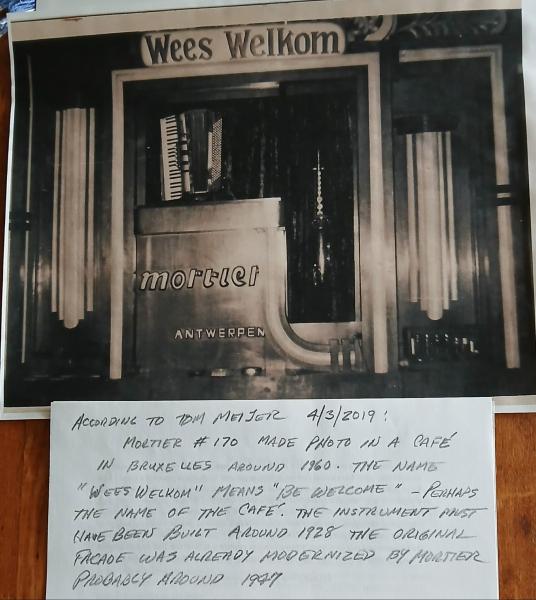 Wees Welkom
mortier
ANTWERPEN
ACCORDING TO TOM MEIJER 4/3/2019:
MORTIER # 170 MADE PHOTO IN A CAFÉ
IN BRUXELLES AROUND 1960. THE NAME
"WEES WELKOM" MEANS "BE WELCOME" - PERHAPS
THE NAME OF THE CAFÉ. THE INSTRUMENT MUST
HAVE BEEN BUILT AROUND 1928 THE ORIGINAL
FACADE WAS ALREADY MODERNIZED BY MORTIER
PROBABLY AROUND